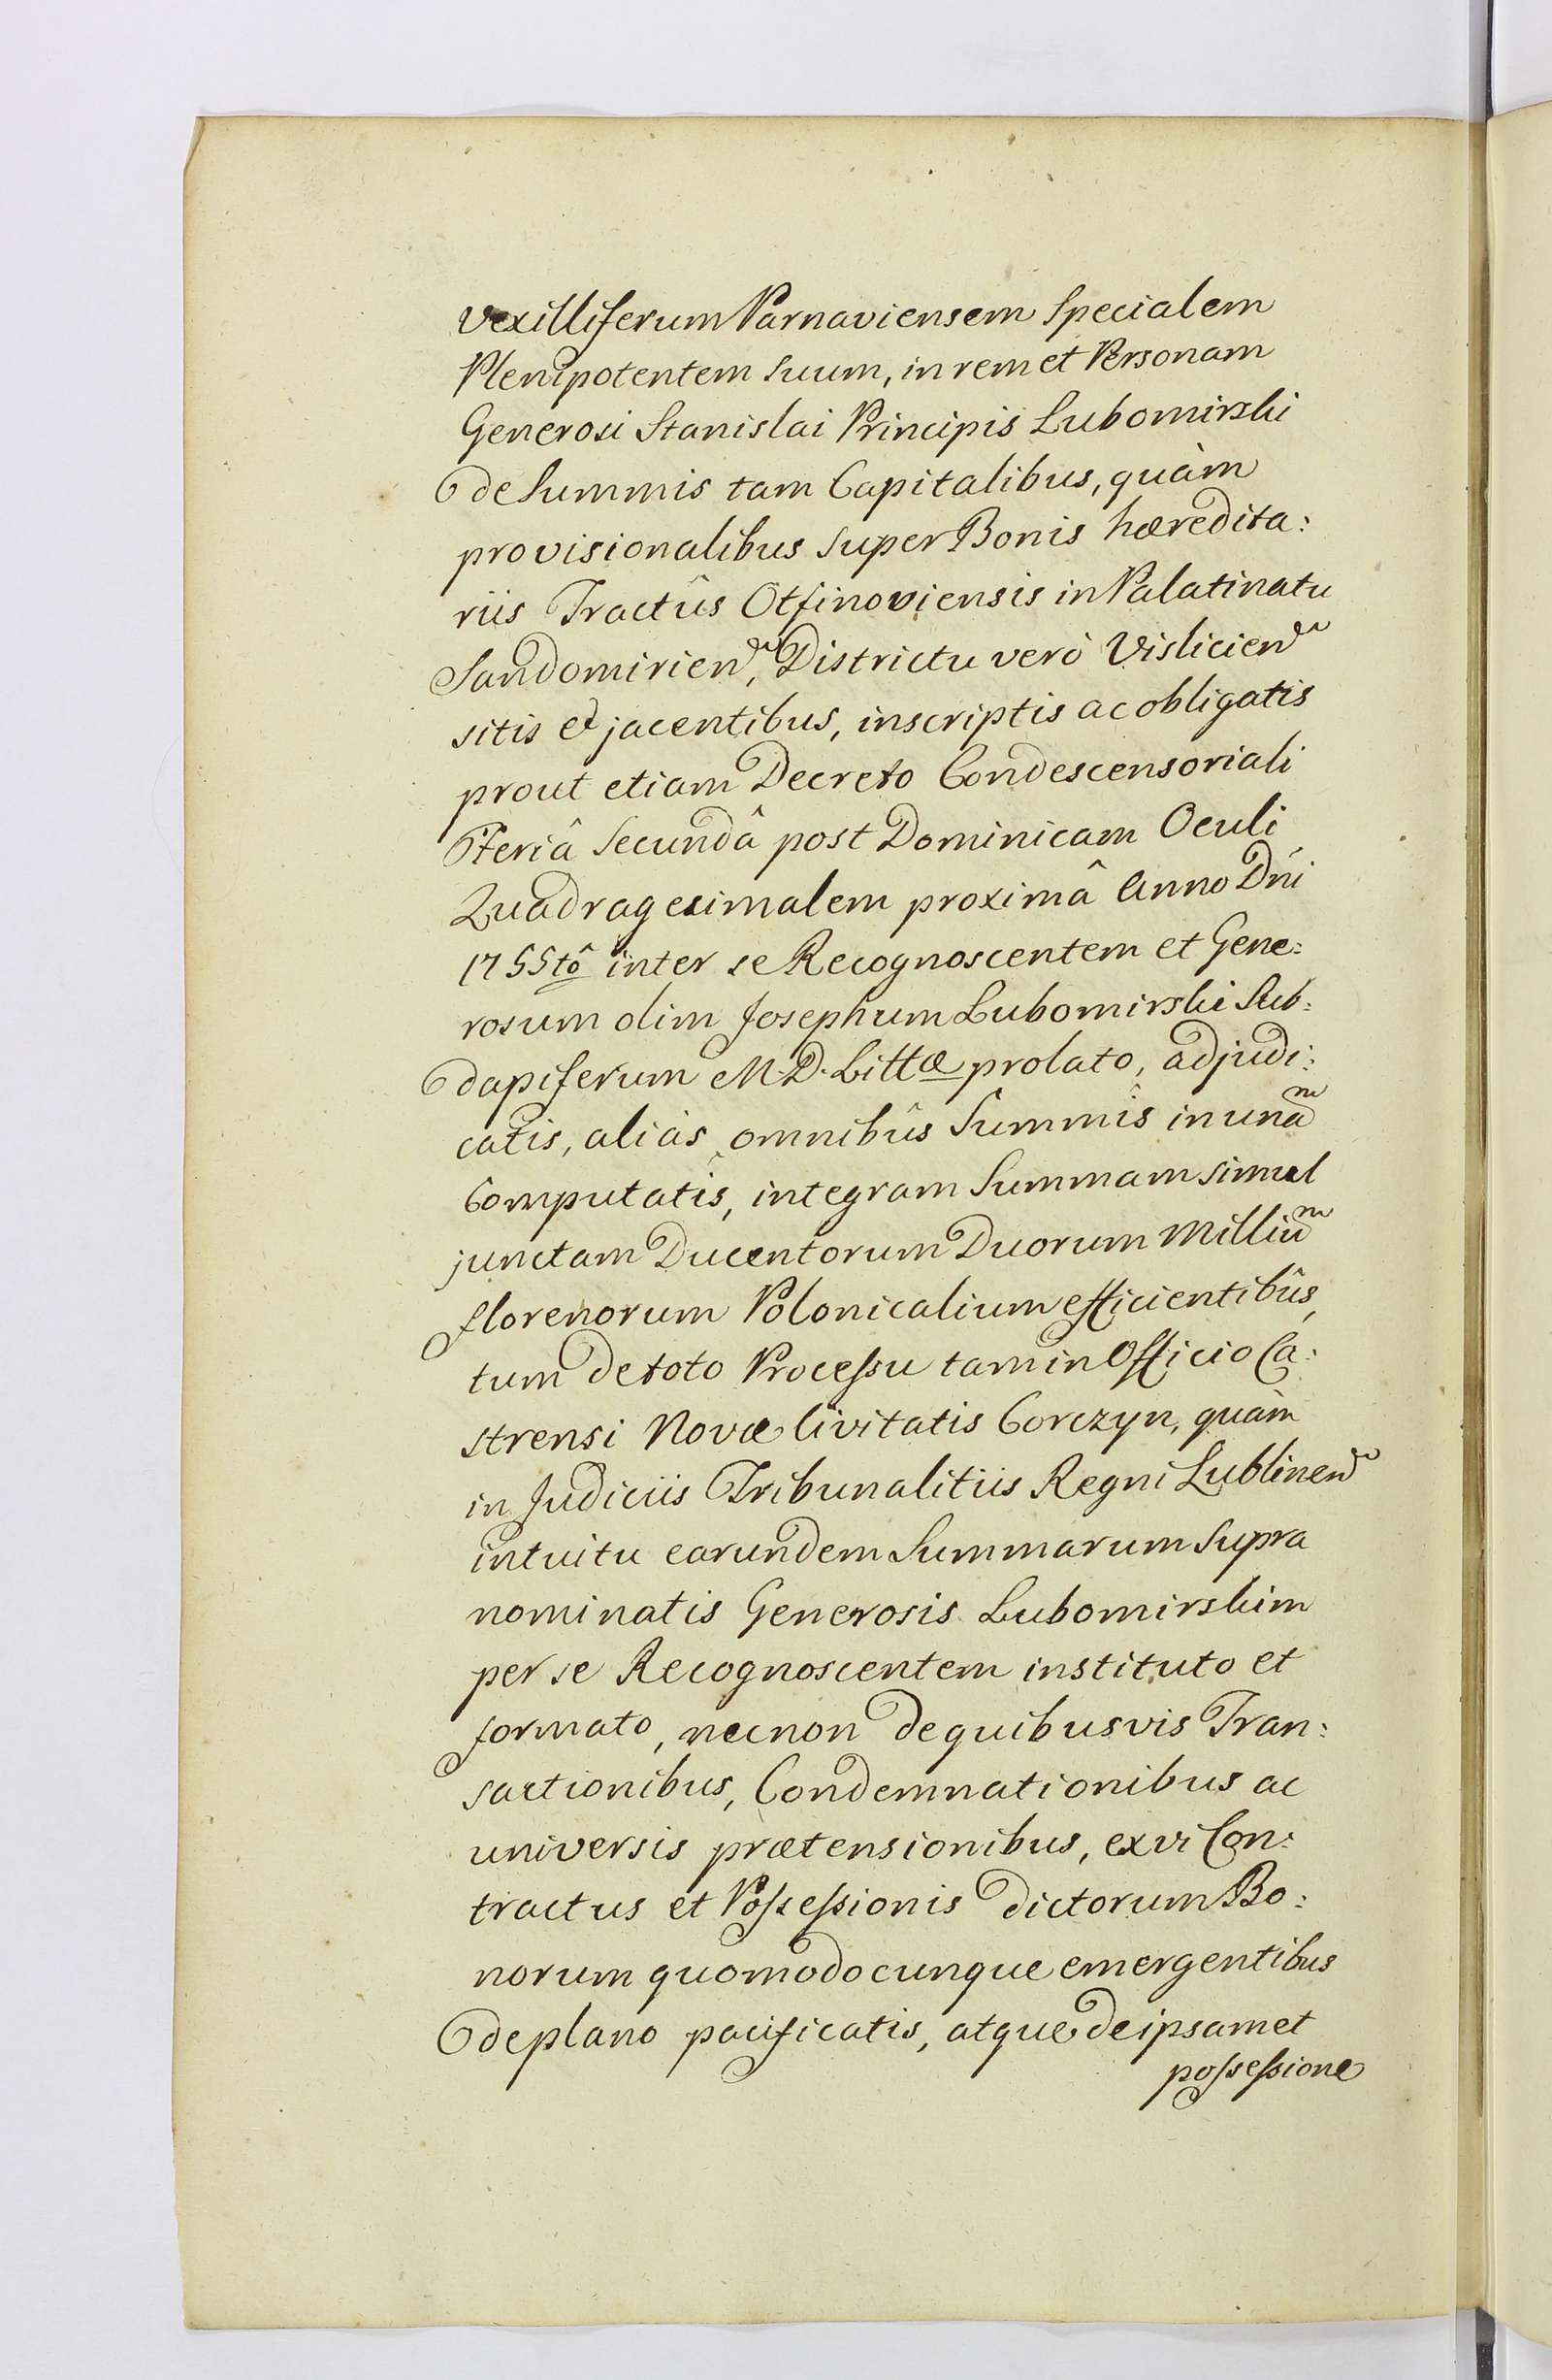 Vexilliferum Parnaviensem Specialem
Plenipotentem Suum, in rem et Personam
Generosi Stanislai Principis Lubomirski
de Summis tam Capitalibus, quàm
provisionalibus super Bonis hæredita:
riis Tractûs Otfinoviensis in Palatinatu
Sandomirien, Districtu verò Vislicien
sitis et jacentibus, inscriptis ac obligatis
prout etiam Decreto Condescensoriali
Feriâ Secundâ post Dominicam Oculi
Quadragesimalem proximâ Anno Dni
1755tô inter se Recognoscentem et Gene:
rosum olim Josephum Lubomirski Sub:
dapiferum M. D. Littæ prolato, adjudi:
catis, aliàs omnibûs Summîs in unam
Computatîs, integram Summam simul
junctam Ducentorum Duorum Millium
florenorum Polonicalium efficientibûs,
tum de toto Processu tam in Officio Ca:
strensi Novæ Civitatis Corczyn, quàm
in Judiciis Tribunalitiis Regni Lublinen
intuitu earundem Summarum supra
nominatis Generosis Lubomirskim
per se Recognoscentem instituto et
formato, necnon de quibusvis Tran:
sactionibus, Condemnationibus ac
universis prætensionibus, ex vi Con:
tractus et Possessionis dictorum Bo:
norum quomodocunque emergentibus
de plano pacificatis, atque de ipsamet
possessione